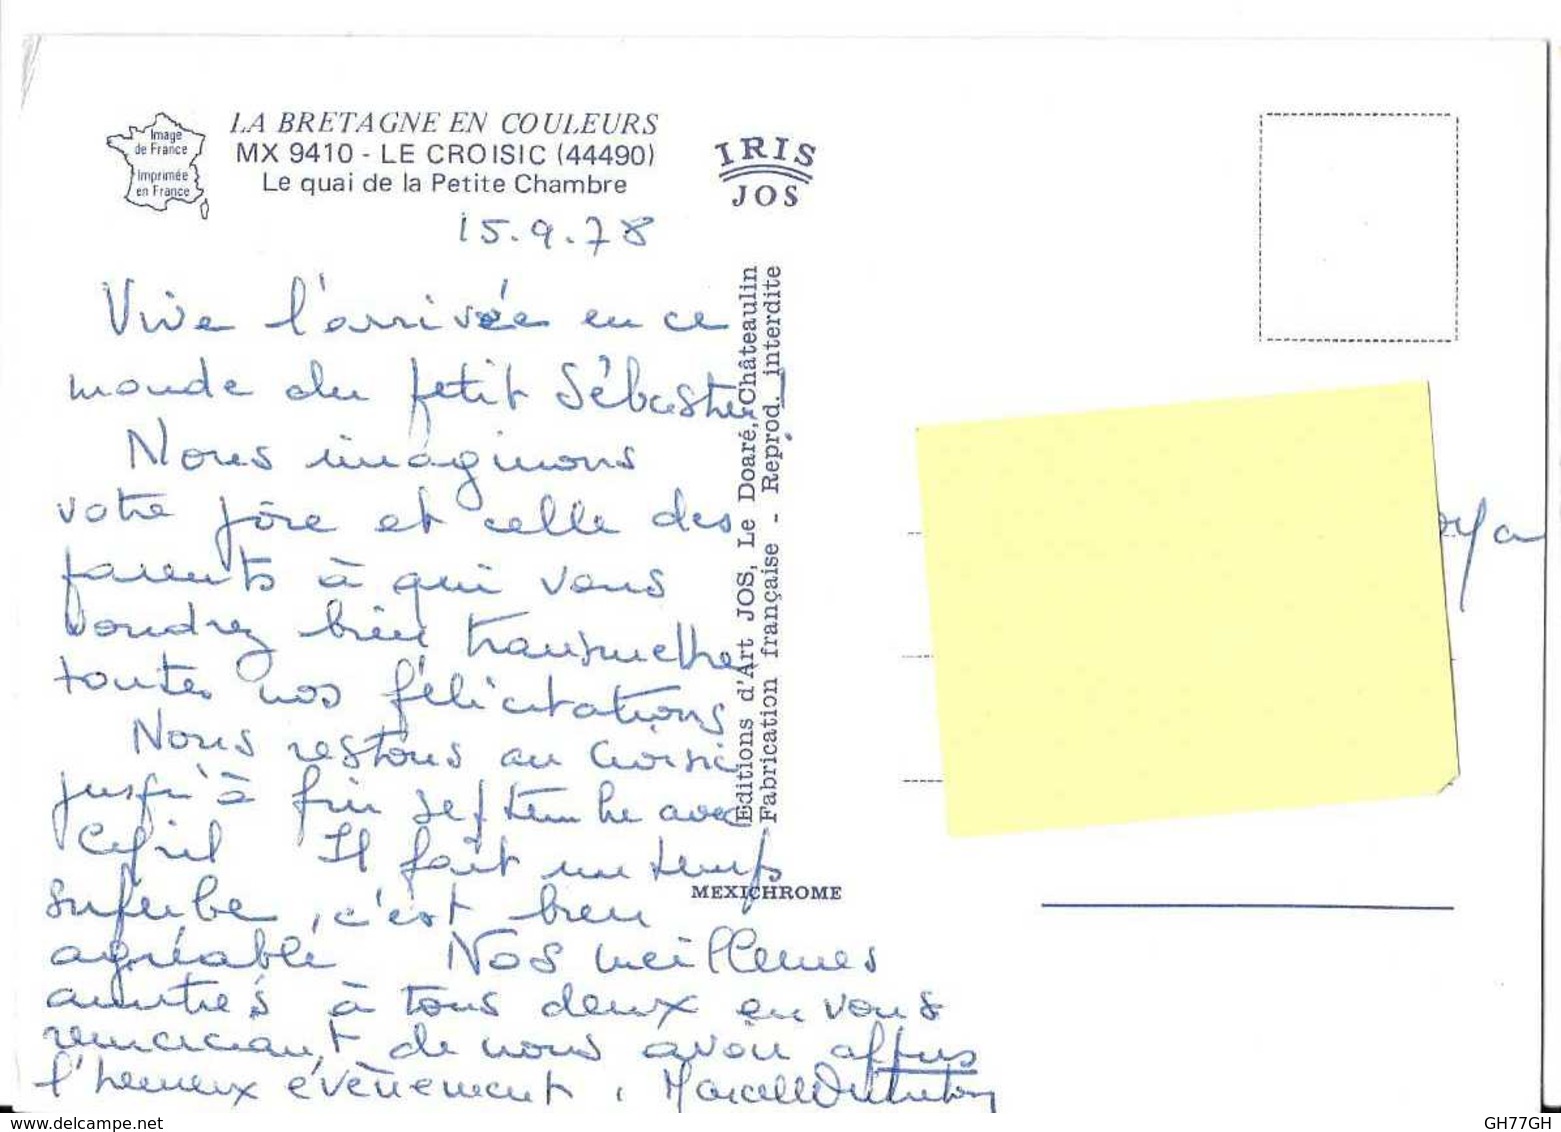 Image
de France
Imprimée
en France
LA BRETAGNE EN COULEURS
MX 9410 - LE CROISIC (44490)
Le quai de la Petite Chambre
IRIS
JOS
15.9.78
Vive l'arrivée en ce
monde du petit Sébastien !
Nous imaginons
votre joie et celle des
parents à qui vous
voudrez bien transmettre
toutes nos félicitations
Nous restons au Croisic
jusqu'à fin septembre avec
Il fait un temps
superbe, c'est bien
agréable Nos meilleures
amitiés à tous deux en vous
remerciant de nous avoir appris
l'heureux évènement.
Editions d'Art JOS, Le Doaré, Châteaulin
Fabrication française - Reprod. interdite
MEXICHROME
GH77GH